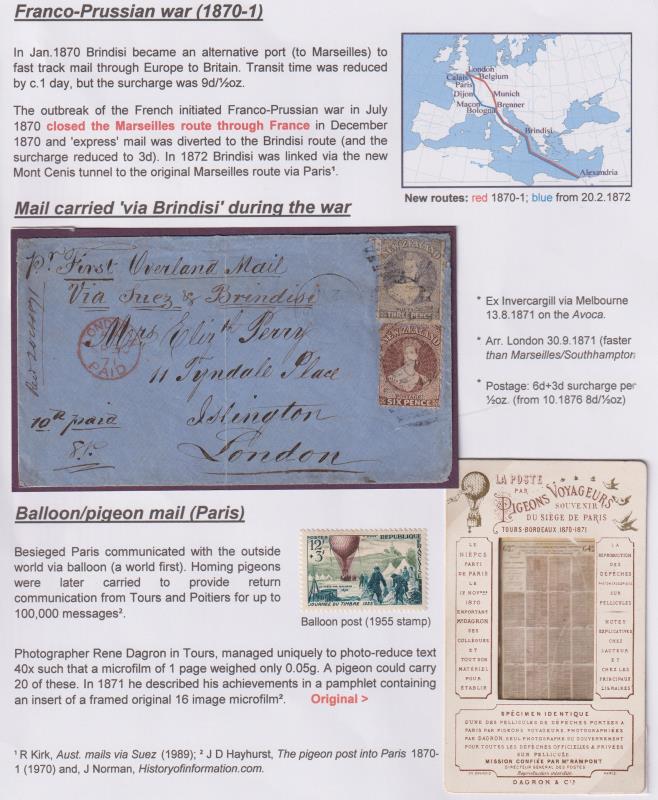 Franco-Prussian war (1870-1)
In Jan.1870 Brindisi became an alternative port (to Marseilles) to
fast track mail through Europe to Britain. Transit time was reduced
by c.1 day, but the surcharge was 9d/½oz.
The outbreak of the French initiated Franco-Prussian war in July
1870 closed the Marseilles route through France in December
1870 and 'express' mail was diverted to the Brindisi route (and the
surcharge reduced to 3d). In 1872 Brindisi was linked via the new
Mont Cenis tunnel to the original Marseilles route via Paris¹.
London
Calais
Belgium
Paris
Dijon
Munich
Macon
Brenner
Bologna
Brindisi
Alexandria
New routes: red 1870-1; blue from 20.2.1872
Mail carried 'via Brindisi' during the war
pr First Overland Mail
Via Suez & Brindisi
Mrs Elizth Perry
11 Tyndale Place
Islington
London
10th paid
LONDON
71
PAID
NEW ZEALAND
THREE PENCE
NEW ZEALAND
POSTAGE
SIX PENCE
* Ex Invercargill via Melbourne
13.8.1871 on the Avoca.
* Arr. London 30.9.1871 (faster
than Marseilles/Southhampton
* Postage: 6d+3d surcharge per
½oz. (from 10.1876 8d/½oz)
Balloon/pigeon mail (Paris)
Besieged Paris communicated with the outside
world via balloon (a world first). Homing pigeons
were later carried to provide return
communication from Tours and Poitiers for up to
100,000 messages².
POSTES
12F
+3F
REPUBLIQUE
FRANÇAISE
JOURNÉE DU TIMBRE 1955
Balloon post (1955 stamp)
Photographer Rene Dagron in Tours, managed uniquely to photo-reduce text
40x such that a microfilm of 1 page weighed only 0.05g. A pigeon could carry
20 of these. In 1871 he described his achievements in a pamphlet containing
an insert of a framed original 16 image microfilm². Original >
LA POSTE
PAR
PIGEONS VOYAGEURS
SOUVENIR
DU SIÈGE DE PARIS
TOURS-BORDEAUX 1870-1871
LE
NIÉPCE
PARTI
DE PARIS
LE
12 NOVBRE
1870
EMPORTANT
MR DAGRON
SES
COLLEGUES
ET
TOUT SON
MATÉRIEL
POUR
ÉTABLIR
LA
REPRODUCTION
DES
DÉPÊCHES
SUR
PELLICULES
NOTES
EXPLICATIVES
CHEZ
L'AUTEUR
ET
CHEZ LES
PRINCIPAUX
LIBRAIRES
SPÉCIMEN IDENTIQUE
D'UNE DES PELLICULES DE DÉPÊCHES PORTÉES A
PARIS PAR PIGEONS VOYAGEURS, PHOTOGRAPHIÉES
PAR DAGRON, SEUL PHOTOGRAPHE DU GOUVERNEMENT
POUR TOUTES LES DÉPÊCHES OFFICIELLES & PRIVÉES
SUR PELLICULE
MISSION CONFIÉE PAR MR RAMPONT
DIRECTEUR GÉNÉRAL DES POSTES
Reproduction interdite
PARIS
DAGRON & Cie
¹ R Kirk, Aust. mails via Suez (1989); ² J D Hayhurst, The pigeon post into Paris 1870-
1 (1970) and, J Norman, Historyofinformation.com.